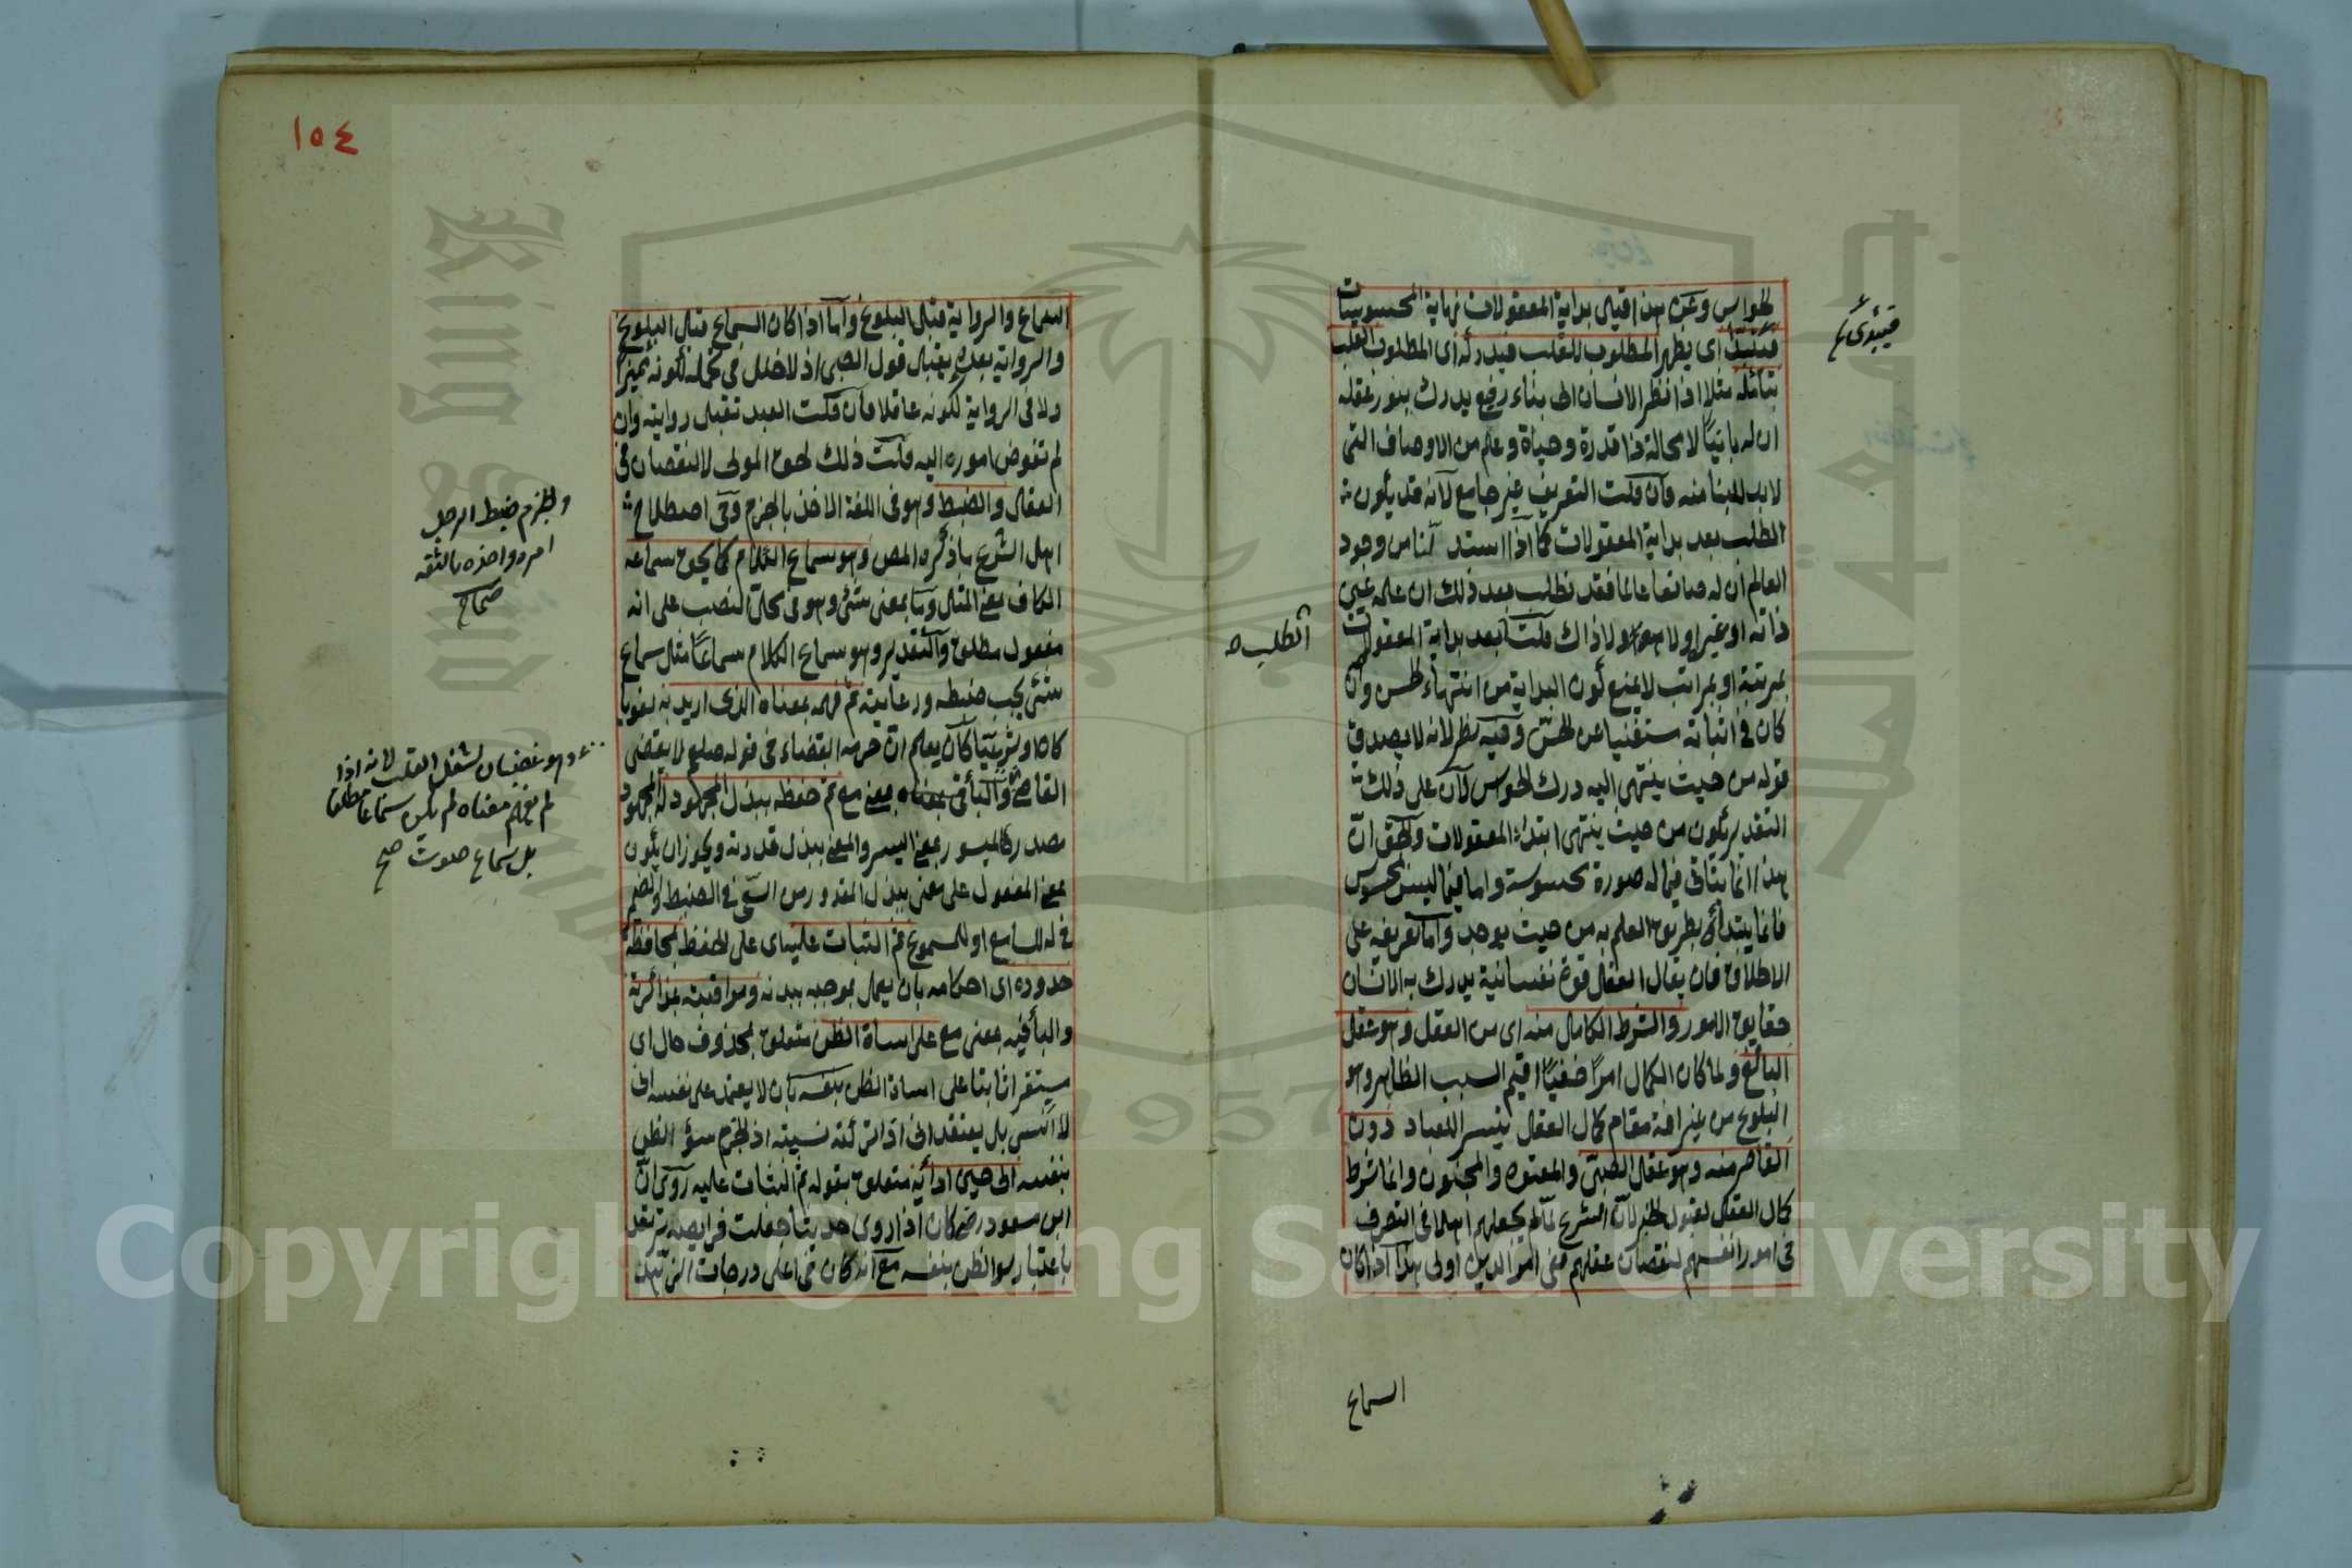 الحواس وعن هذا قيل بداية المعقولات نهاية المحسوسات
فيبتدئ اي يظهر المطلوب للقلب فيدركه اي المطلوب القلب
بتأمله مثلا اذا نظر الانسان الى بناء رفيع يدرك بنور عقله
ان له بانيًا لا محالة ذا قدرة وحياة وعلم من الاوصاف التى
لابد للبنا منه فان قلت التعريف غير جامع لانه قد يكون
الطلب بعد بداية المعقولات كما اذا استدللنا من وجود
العالم ان له صانعا عالما فقد نطلب بعد ذلك ان علمه عين
ذاته او غيره او لا هو ولا ذاك قلت بعد بداية المعقولات
الطلب
بمرتبة او بمراتب لا يمنع كون البداية من انتهاء الحس وان
كان فى اثباته مستغنيا عن الحسّ وفيه نظر لانه لا يصدق
قوله من حيث ينتهى اليه درك الحواس لان على ذلك
التقدير يكون من حيث ينتهى ابتداء المعقولات والحق انّ
هذا انما يتاتى فيما له صورة محسوسة واما فيما ليس بمحسوس
فانما يبتدأ بطريق العلم به من حيث يوجد واما تعريفه على
الاطلاق فان يقال العقل قوة نفسانية يدرك به الانسان
حقايق الامور والشرط الكامل منه اى من العقل وهو عقل
البالغ ولما كان الكمال امرًا خفيًا اقيم السبب الظاهر وهو
البلوغ من غير افة مقام كمال العقل تيسيرا للعباد دون
القاصر منه وهو عقل الصبىّ والمعتوه والمجنون وانما شرط
كمال العقل لقبول الخبر لان الشرع لما لم يجعلهم اهلا فى التصرف
فى امور انفسهم لنقصان عقلهم ففى امر الدين اولى هذا اذا كان
السماع
١٥٤
السماع والرواية قبل البلوغ واما اذا كان السماع قبل البلوغ
والرواية بعده يقبل قول الصبى اذ لا خلل فى تحمله لكونه مميزًا
ولا فى الرواية لكونه عاقلا فان قلت العبد تقبل روايته وان
لم تفوض اموره اليه قلت ذلك لحق المولى لا لنقصان فى
العقل والضبط وهو فى اللغة الاخذ بالجزم وفى اصطلاح
اهل الشرع ما ذكره المص وهو سماع الكلام كما يحق سماعه
الكاف بمعنى المثل وما بمعنى شئ وهو فى محل النصب على انه
مفعول مطلق والتقدير وهو سماع الكلام سماعًا مثل سماع
شئ يجب ضبطه ورعايته ثم فهمه بمعناه الذى اريد به لغويا
كان او شرعيّا كان يعلم ان حرمه القضاء فى قوله صلعم لا يقضى
القاضى وهو غضبان لشغل القلب لانه اذا
لم يفهم معناه لم يكن سماعا مطلقا
بل سماع صوت صح
والبأ فى بمعناه بمعنى مع ثم حفظه ببذل المجهود له المجهود
مصدر كالميسور بمعنى اليسر والمعنى ببذل قدرته ويجوز ان يكون
بمعنى المفعول على معنى ببذل المقدور من السعى فى الضبط والضمير
فى له للسامع او للمسموع ثم الثبات عليه اى على الحفظ بمحافظة
حدوده اى احكامه بان يعمل بموجبه ببدنه ومراقبته بمذاكرته
والبأ فيه بمعنى مع على اساءة الظن متعلق بمحذوف حال اى
مستقرا ثابتا على اساءة الظن بنفسه بان لا يعتمد على نفسه انى
لا انسى بل يعتقد انى اذا تركته نسيته اذ الجزم سؤ الظن
بنفسه الى حين ادائه متعلق بقوله ثم الثبات عليه روى ان
ابن مسعود رضى كان اذا روى حديثا جعلت فرايصه ترتعد
باعتبار سوء الظن بنفسه مع انه كان فى اعلى درجات الزهد
والجزم ضبط الرجل
امره واخذه بالثقه
صحاح
Copyright © King Saud University
1957